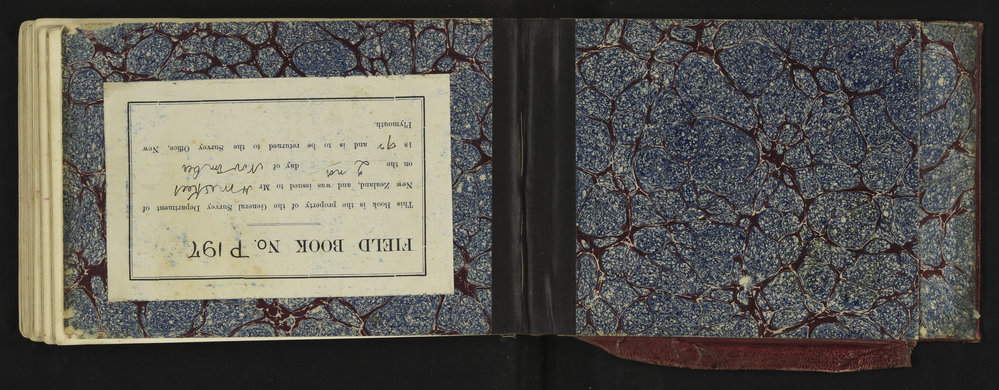 FIELD BOOK No. P197
This Book is the property of the General Survey Department of
New Zealand, and was issued to Mr H M Skeet
on the 2nd day of November
1892 and is to be returned to the Survey Office, New
Plymouth.